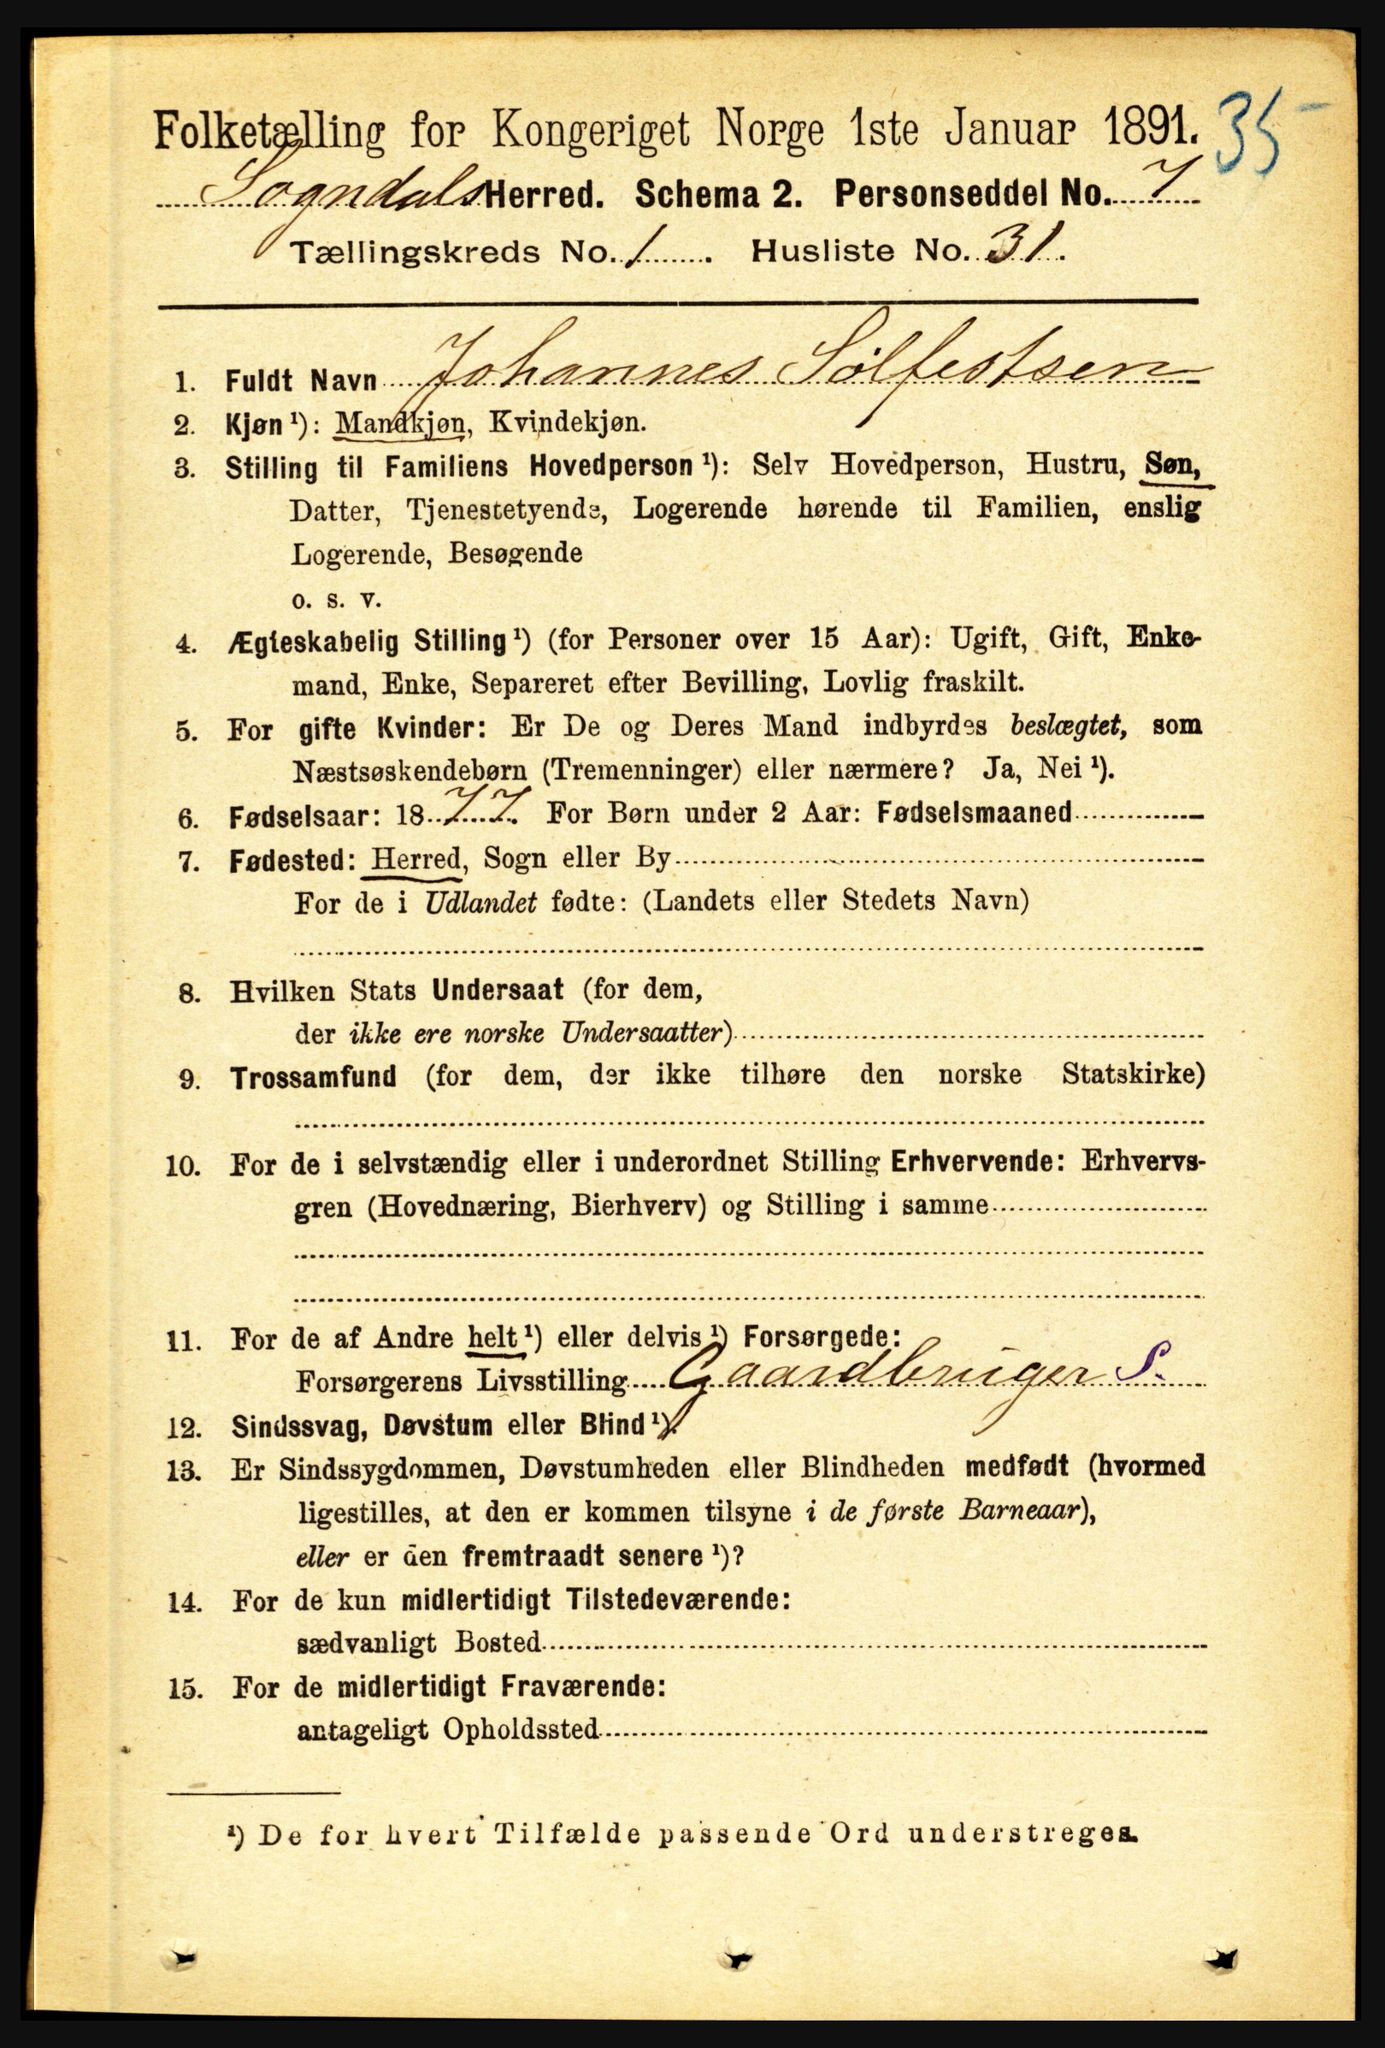 Folketælling for Kongeriget Norge 1ste Januar 1891. 35
Sogndals Herred. Schema 2. Personseddel No. 7
Tællingskreds No. 1. Husliste No. 31.
1. Fuldt Navn Johannes Sølfestsen
2. Kjøn ¹): Mandkjøn, Kvindekjøn.
3. Stilling til Familiens Hovedperson ¹): Selv Hovedperson, Hustru, Søn,
Datter, Tjenestetyende, Logerende hørende til Familien, enslig
Logerende, Besøgende
o. s. v.
4. Ægteskabelig Stilling ¹) (for Personer over 15 Aar): Ugift, Gift, Enke-
mand, Enke, Separeret efter Bevilling, Lovlig fraskilt.
5. For gifte Kvinder: Er De og Deres Mand indbyrdes beslægtet, som
Næstsøskendebørn (Tremenninger) eller nærmere? Ja, Nei ¹).
6. Fødselsaar: 1877. For Børn under 2 Aar: Fødselsmaaned
7. Fødested: Herred, Sogn eller By
For de i Udlandet fødte: (Landets eller Stedets Navn)
8. Hvilken Stats Undersaat (for dem,
der ikke ere norske Undersaatter)
9. Trossamfund (for dem, der ikke tilhøre den norske Statskirke)
10. For de i selvstændig eller i underordnet Stilling Erhvervende: Erhvervs-
gren (Hovednæring, Bierhverv) og Stilling i samme
11. For de af Andre helt ¹) eller delvis ¹) Forsørgede:
Forsørgerens Livsstilling Gaardbruger S.
12. Sindssvag, Døvstum eller Blind ¹).
13. Er Sindssygdommen, Døvstumheden eller Blindheden medfødt (hvormed
ligestilles, at den er kommen tilsyne i de første Barneaar),
eller er den fremtraadt senere ¹)?
14. For de kun midlertidigt Tilstedeværende:
sædvanligt Bosted
15. For de midlertidigt Fraværende:
antageligt Opholdssted
¹) De for hvert Tilfælde passende Ord understreges.